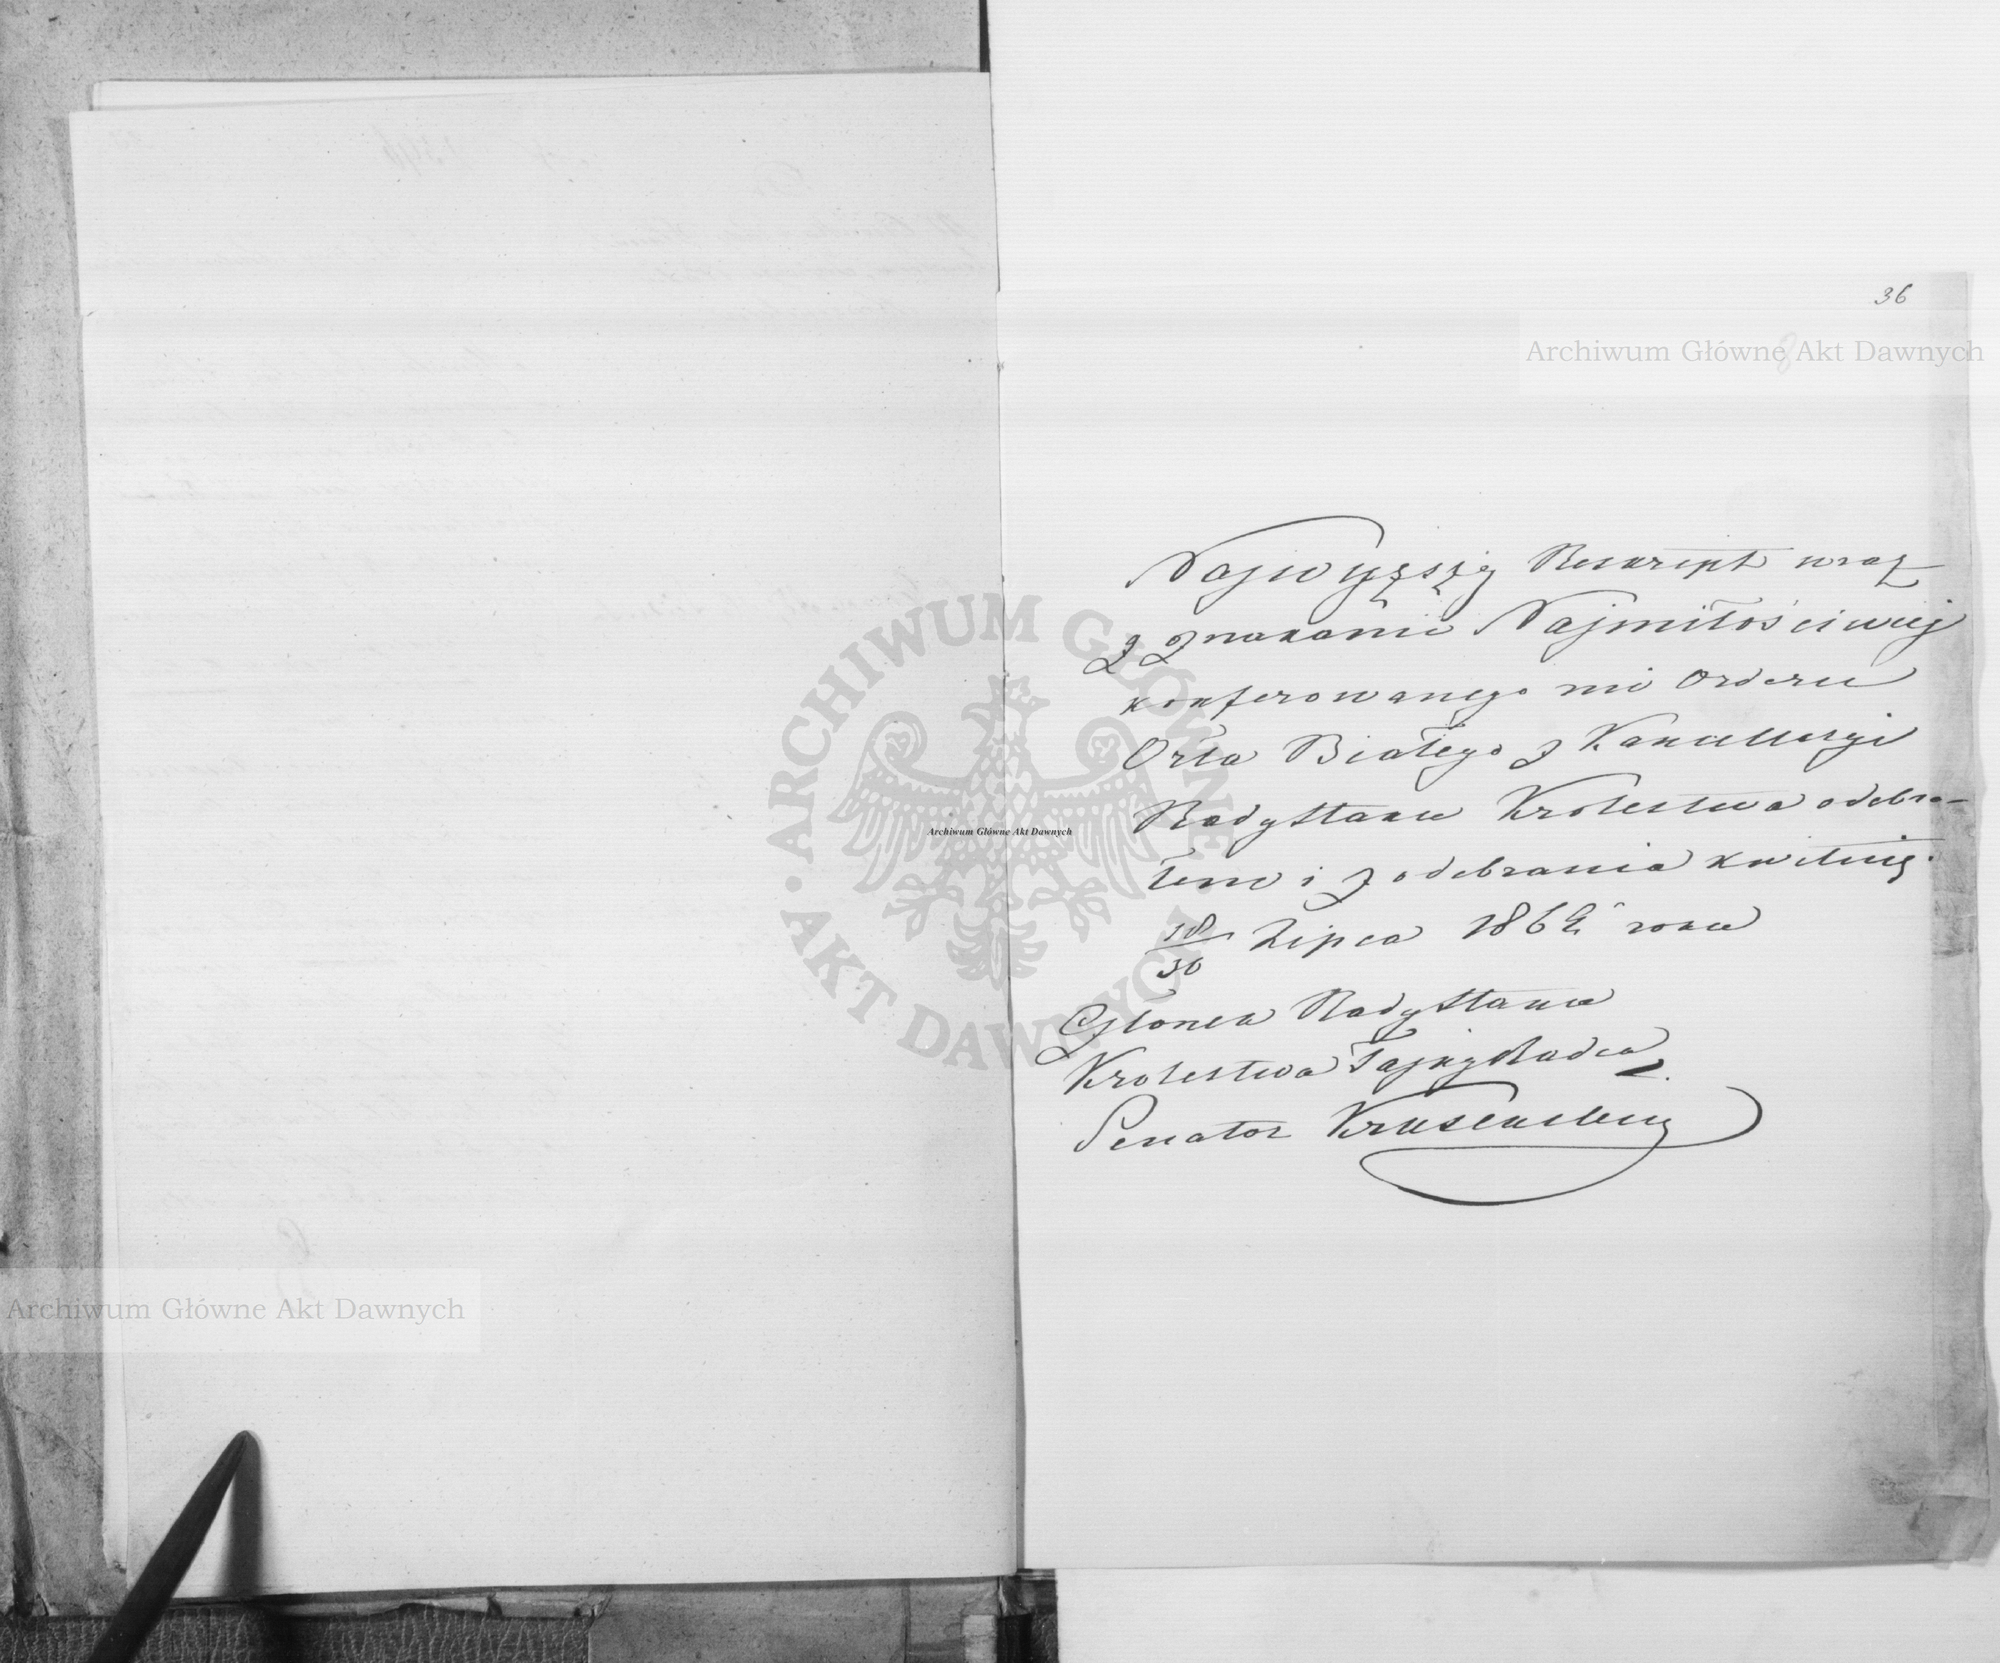 36
Archiwum Główne Akt Dawnych
Najwyższy Reskript wraz
z znakami Najmiłościwiej
konferowanego mi Orderu
Orła Białego z Kancellaryi
Rady Stanu Krolestwa odebra-
łem i z odebrania kwituię.
18/30 Lipca 1862 roku
Członek Rady Stanu
Krolestwa Tajny Radca
Senator Krusenstern
ARCHIWUM GŁÓWNE AKT DAWNYCH
Archiwum Główne Akt Dawnych
Archiwum Główne Akt Dawnych